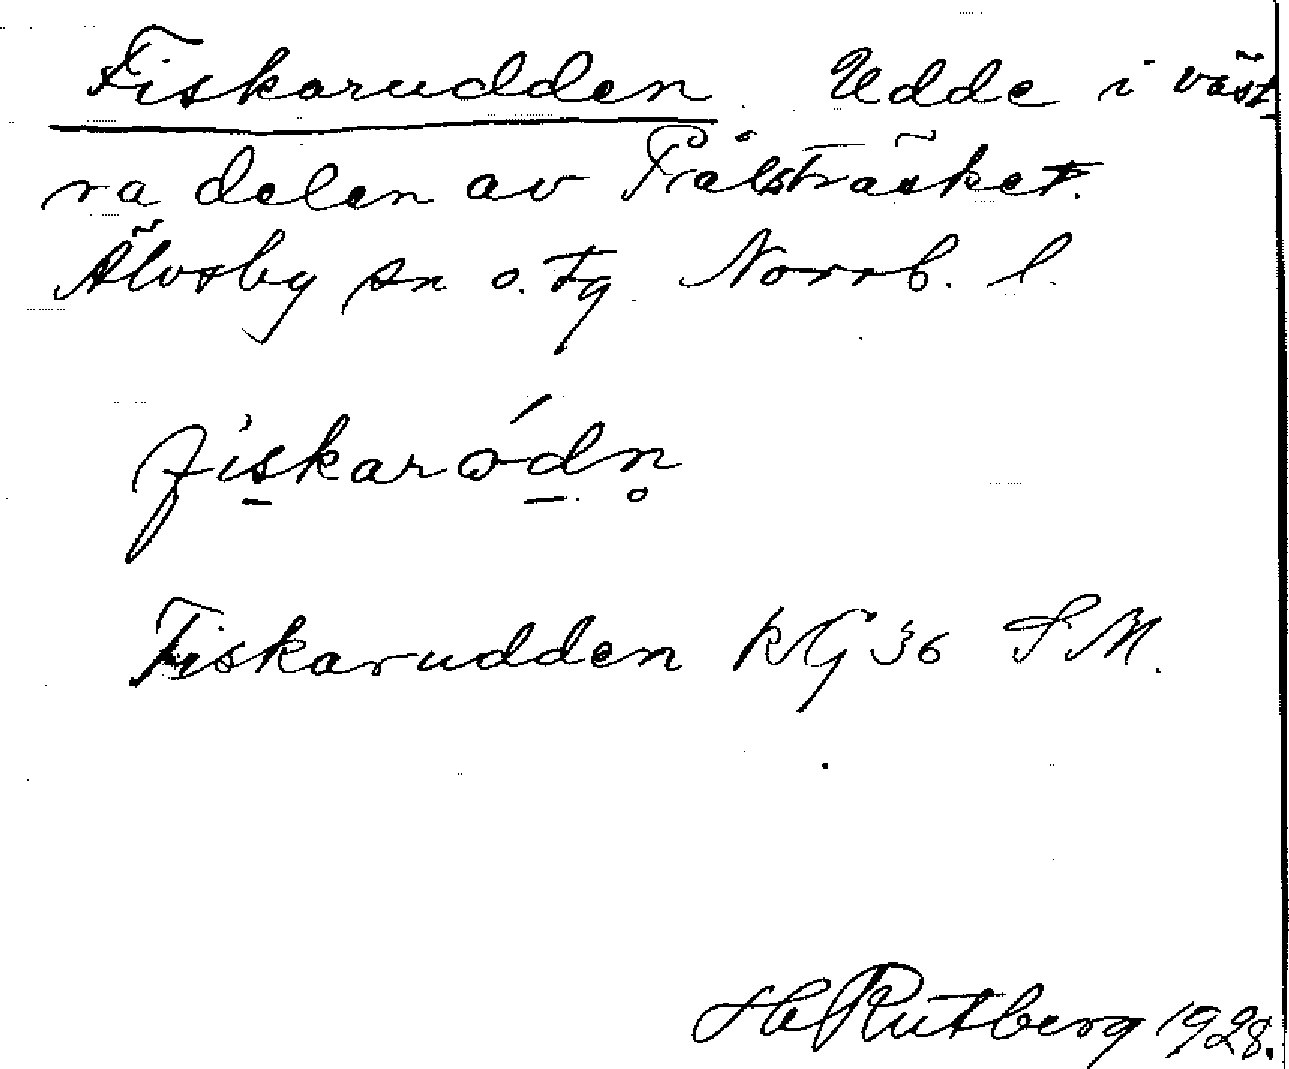 Fiskarudden. Udde i väst
ra delen av Frålsträsket.
Älvsby sn o. tg Norrb. l.
fiskaródn
Fiskarudden KG 36 S M.
H Rutberg 1928.